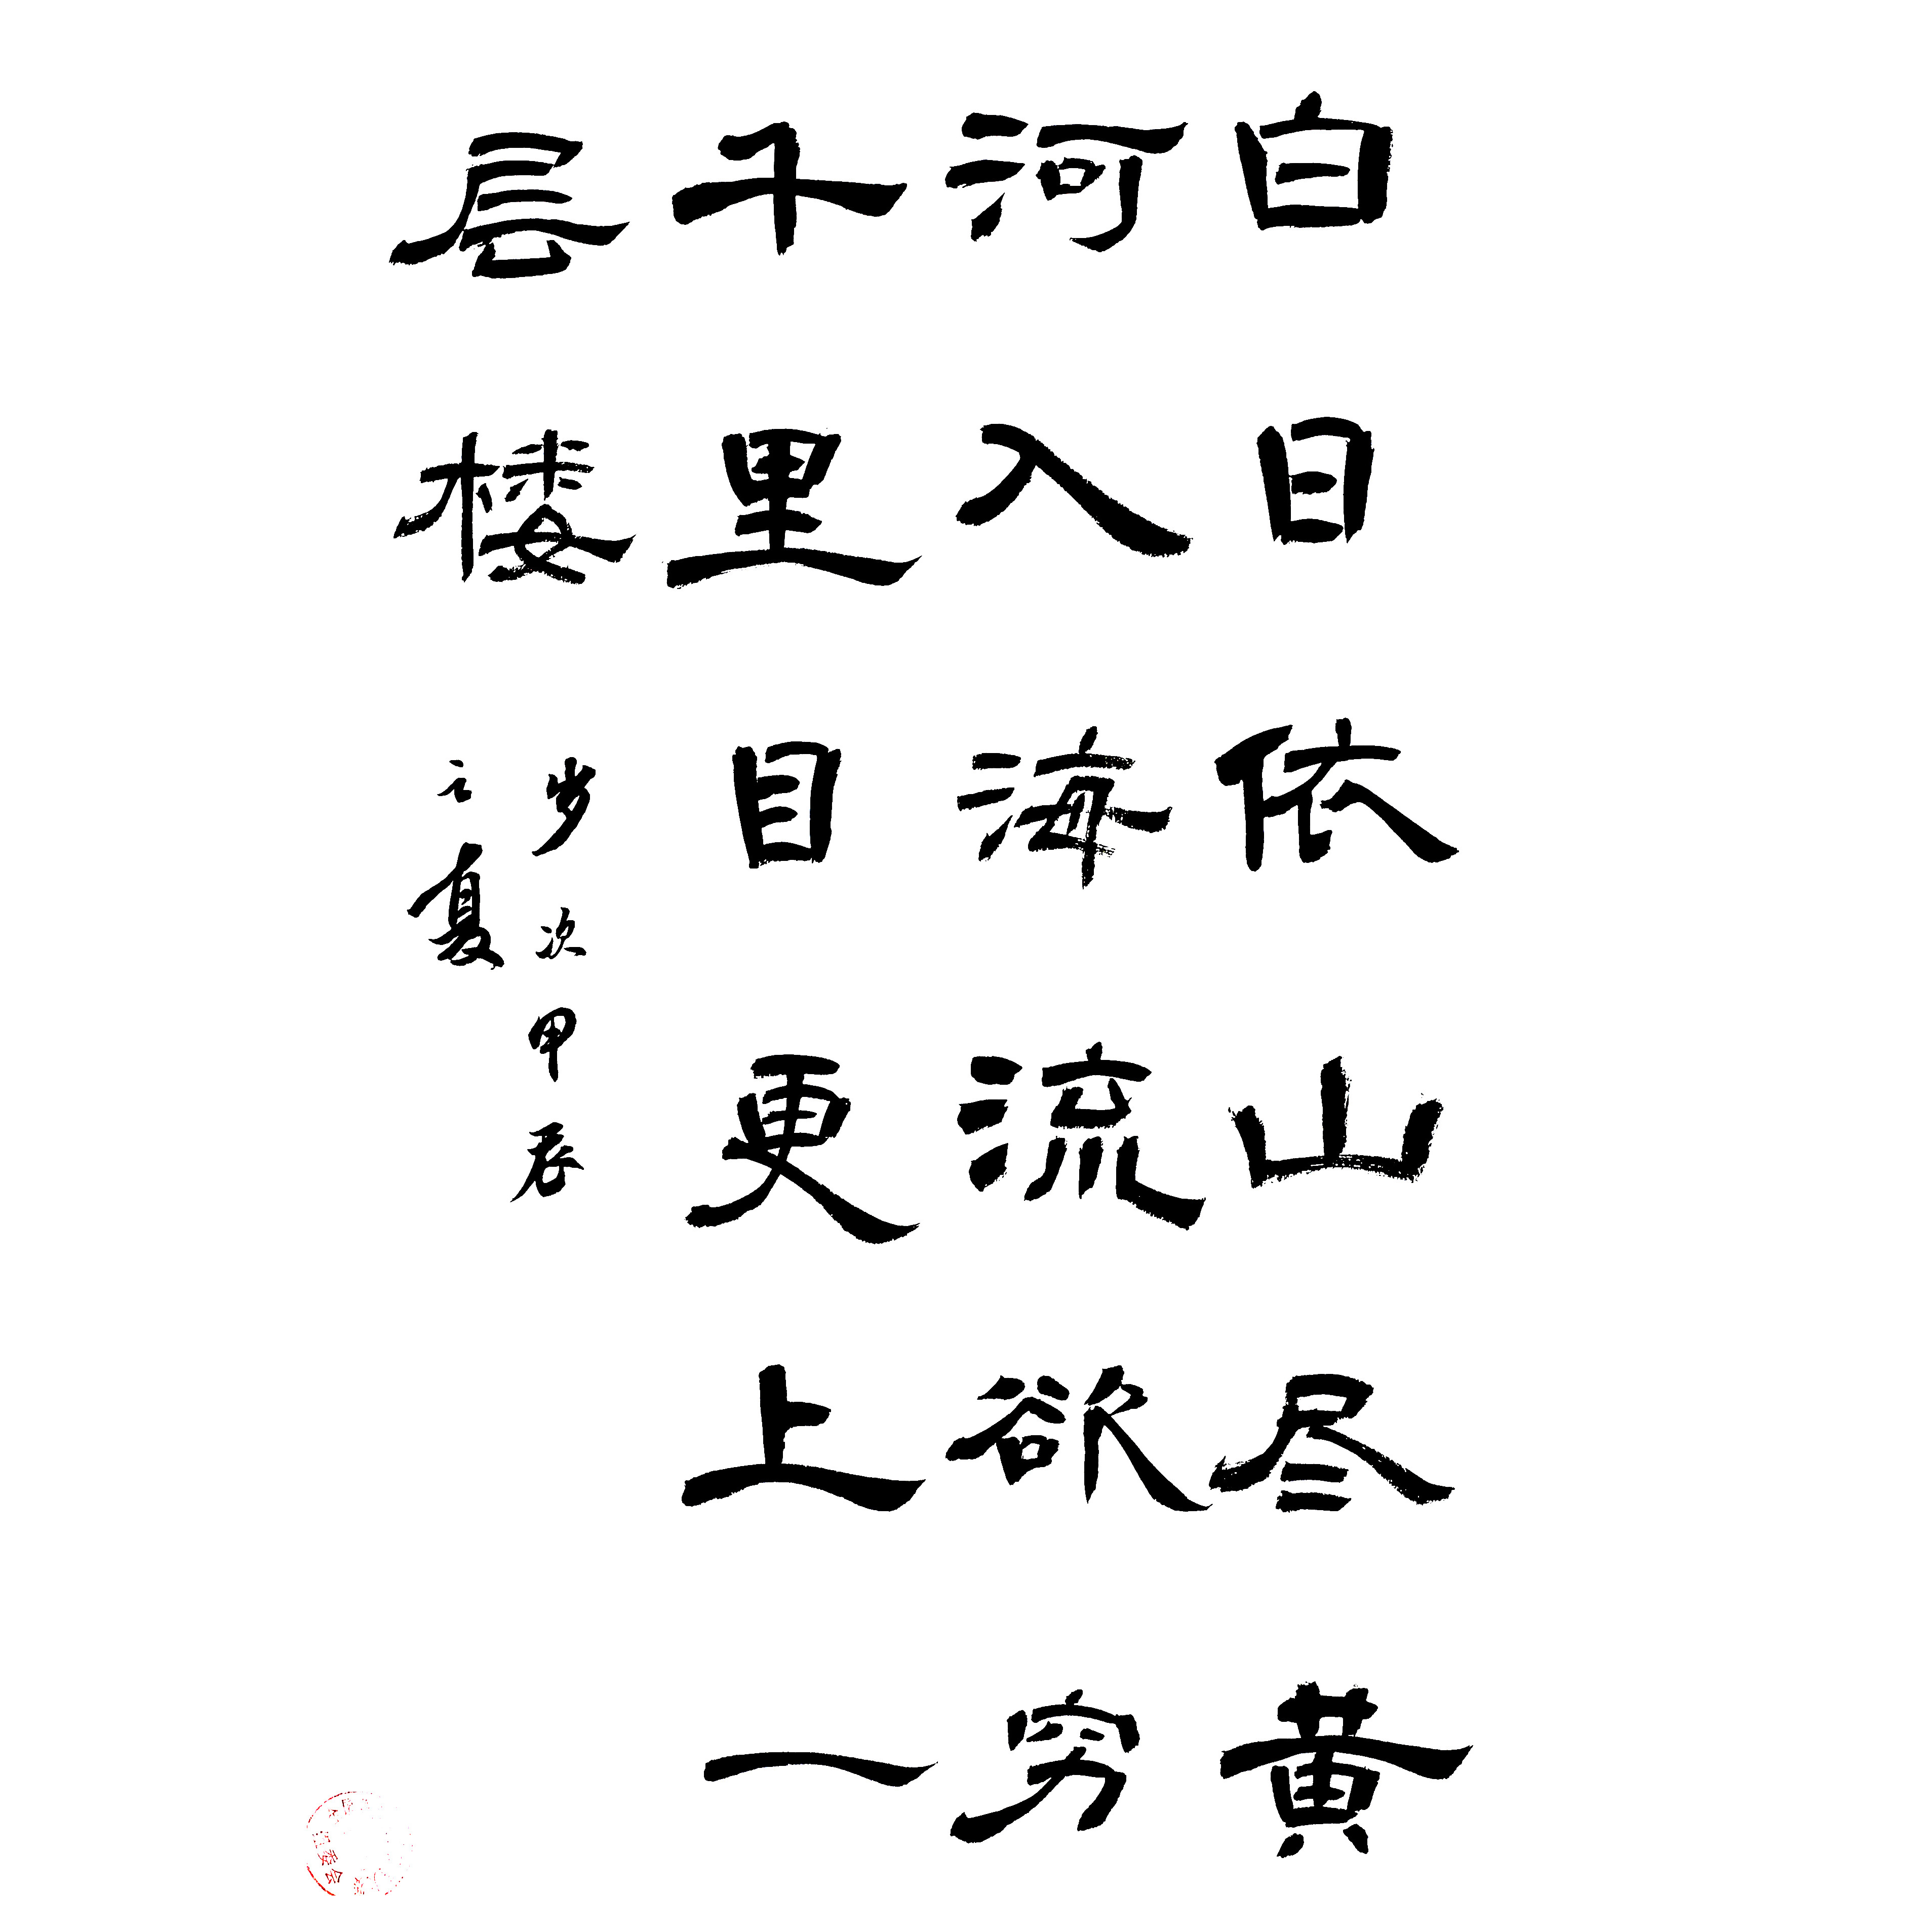 白日依山尽黄
河入海流欲穷
千里目更上一
层楼
岁次甲辰
之夏